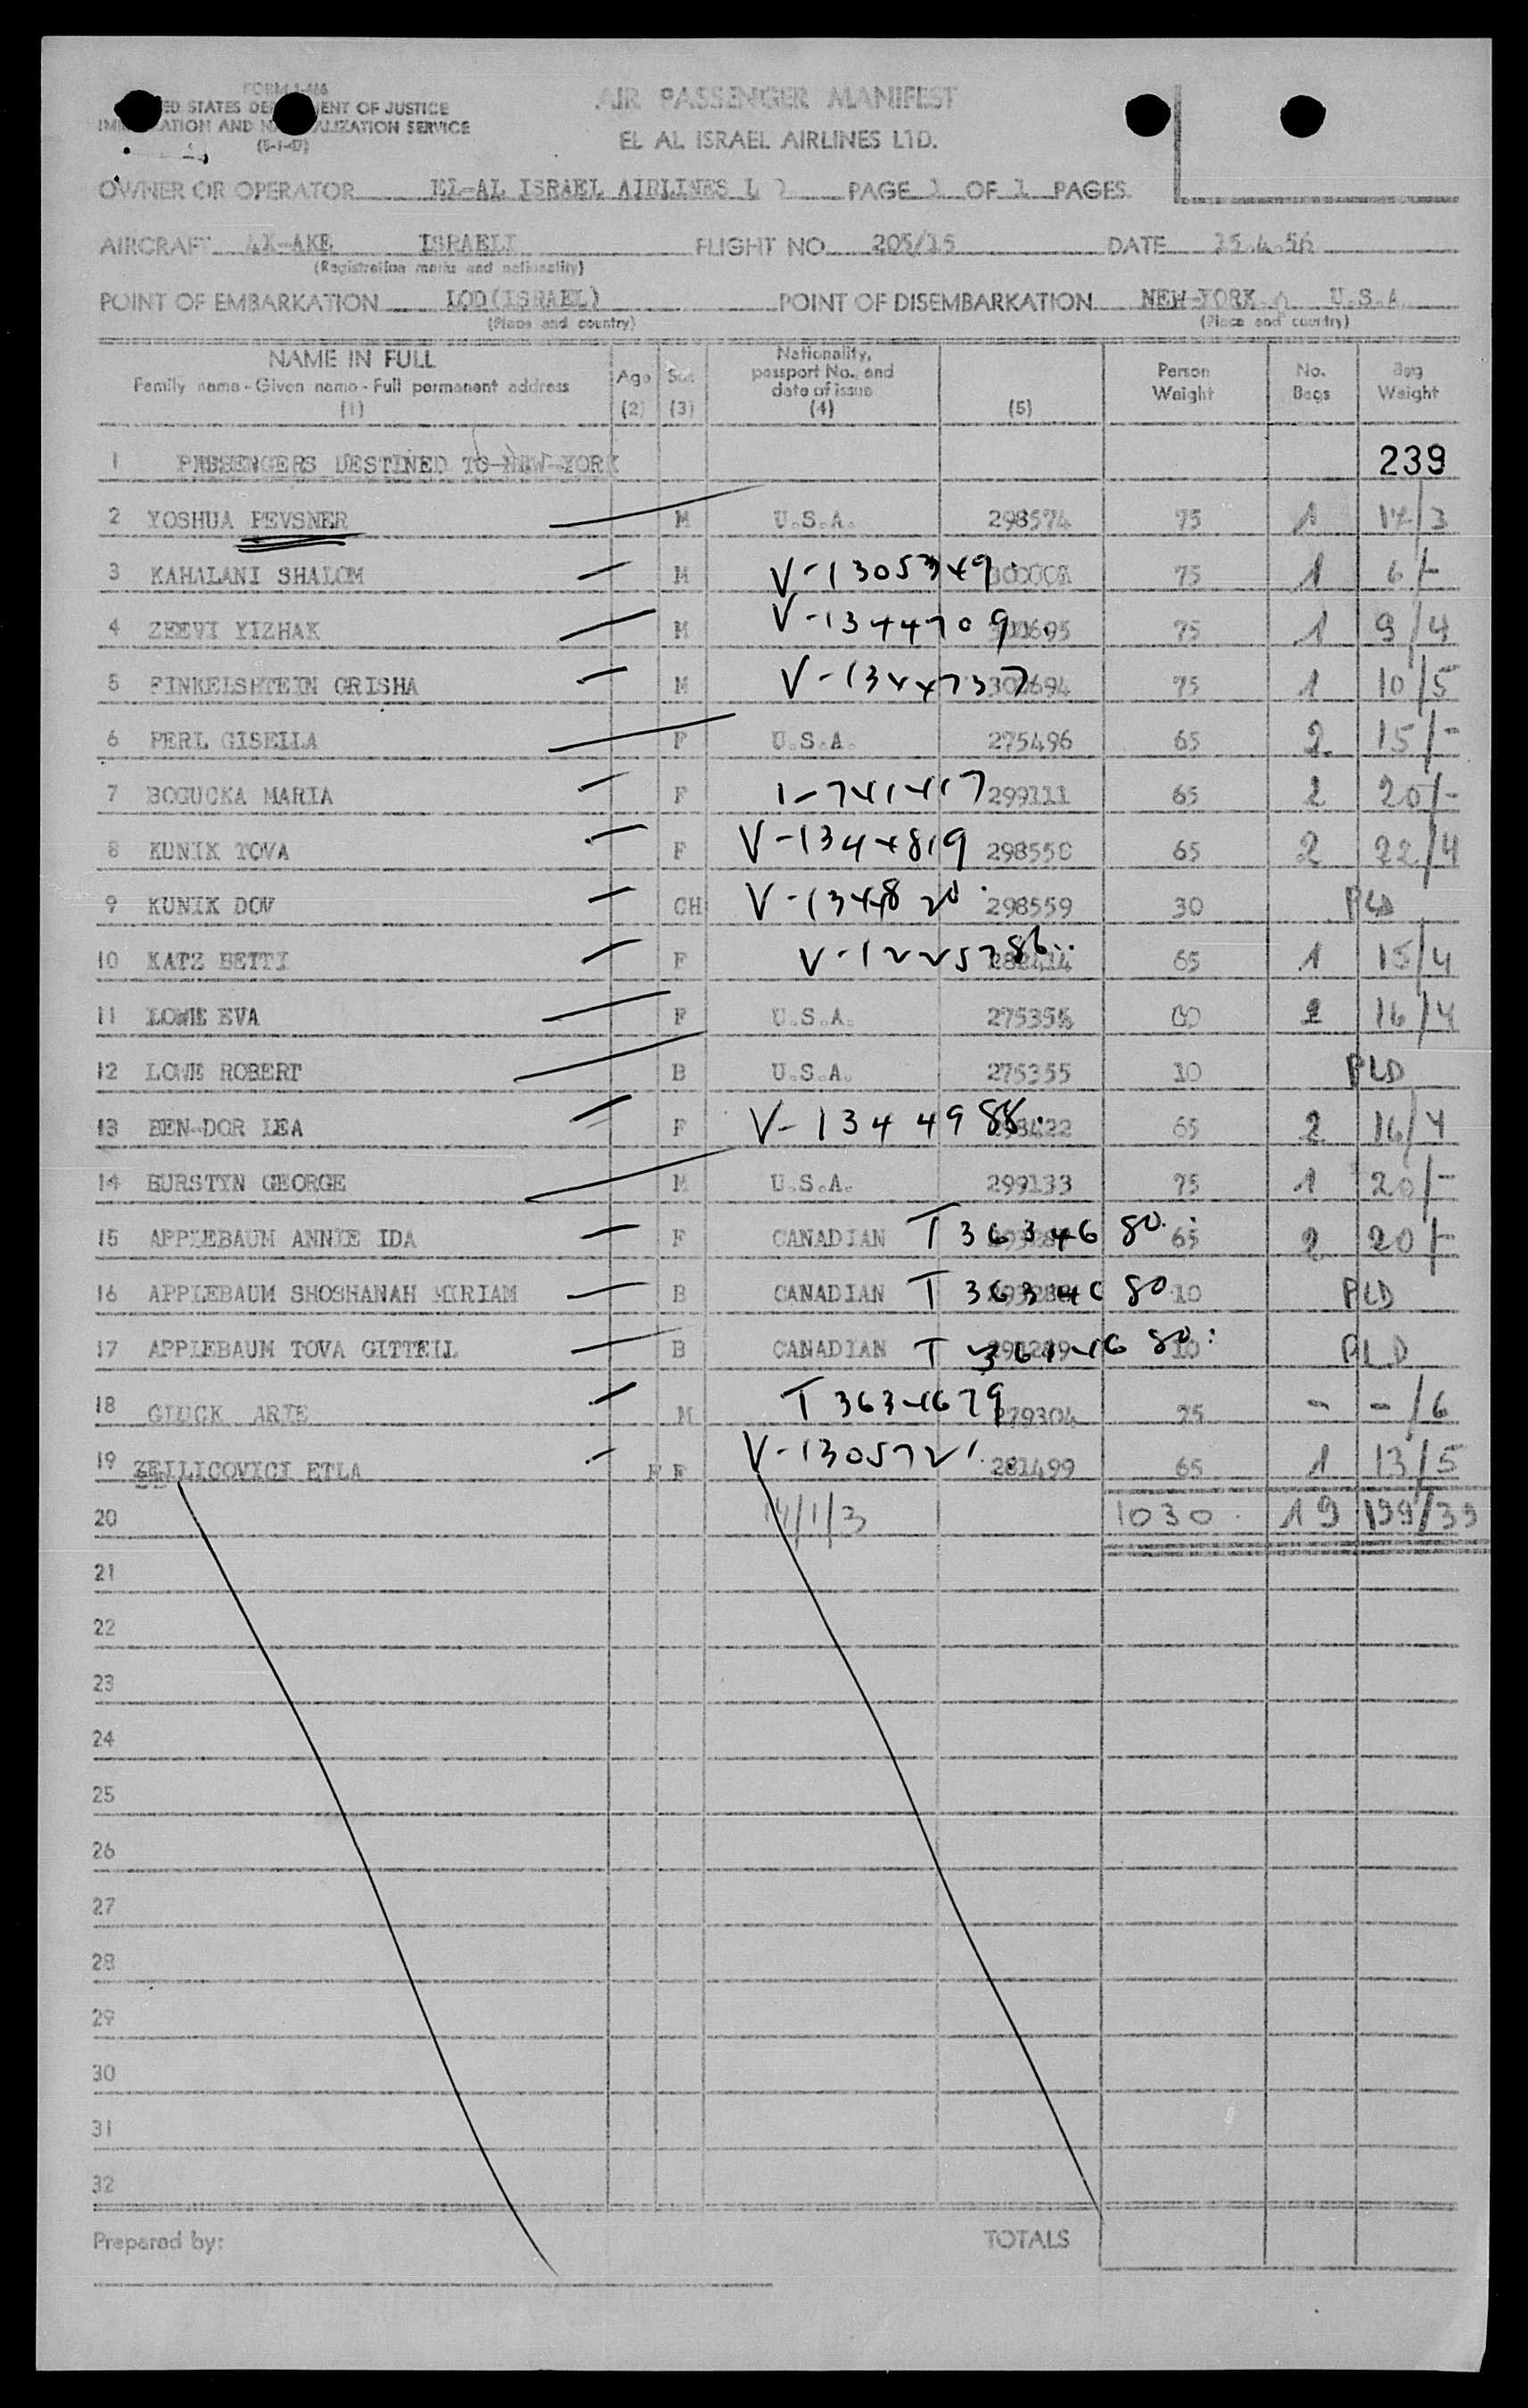 FORM I-466
ED STATES DE ENT OF JUSTICE
IMM ATION AND N ALIZATION SERVICE
(5-1-47)
AIR PASSENGER MANIFEST
EL AL ISRAEL AIRLINES LTD.
OWNER OR OPERATOR EL-AL ISRAEL AIRLINES L PAGE 1 OF 1 PAGES
AIRCRAFT 4X-AKE ISRAELI FLIGHT NO. 205/15 DATE 15.4.56
(Registration marks and nationality)
POINT OF EMBARKATION LOD(ISRAEL) POINT OF DISEMBARKATION NEW-YORK U.S.A
(Place and country) (Place and country)
NAME IN FULL
Family name - Given name - Full permanent address
(1)
Age
(2)
Sex
(3)
Nationality,
passport No., and
date of issue
(4)
(5)
Person
Weight
No.
Bags
Bag
Weight
1 PASSENGERS DESTINED TO NEW-YORK 239
2 YOSHUA PEVSNER M U.S.A. 298574 75 1 17/3
3 KAHALANI SHALOM M V-1305349 75 1 6/-
4 ZEEVI YIZHAK M V-1344709 75 1 9/4
5 FINKELSHTEIN GRISHA M V-1344737 75 1 10/5
6 PERL GISELLA F U.S.A. 275496 65 2 15/-
7 BOGUCKA MARIA F 1-741417 299111 65 2 20/-
8 KUNIK TOVA F V-1344819 298558 65 2 22/4
9 KUNIK DOV CH 298559 30 PLD
10 KATZ BETTI F V-1225786 65 1 15/4
11 LOWE EVA F U.S.A. 2 16/4
12 LOWE ROBERT B U.S.A. 275355 10 PLD
13 BEN-DOR LEA F V-1344988 65 2 16/4
14 BURSTYN GEORGE M U.S.A. 299133 75 1 20/-
15 APPLEBAUM ANNIE IDA F CANADIAN T 3634680 65 2 20/-
16 APPLEBAUM SHOSHANAH MIRIAM B CANADIAN T 3634680 10 PLD
17 APPLEBAUM TOVA GITTELL B CANADIAN T 10 PLD
18 GLUCK ARIE M T 3634679 279304 75 - -/6
19 ZEILICOVICI ETLA F F V-1305721 281499 65 1 13/5
20 14/1/3 1030 19 199/39
21
22
23
24
25
26
27
28
29
30
31
32
Prepared by: TOTALS